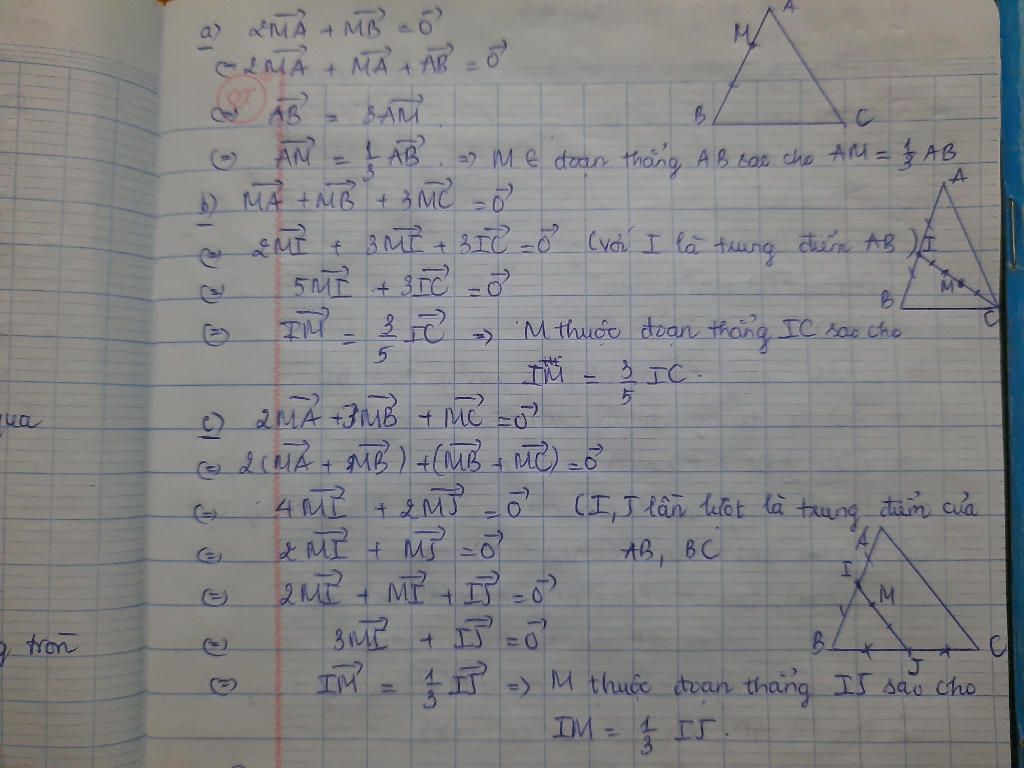 a) 2MA→ + MB→ = 0→
⇔ 2MA→ + MA→ + AB→ = 0→
⇔ AB→ = 3AM→.
⇔ AM→ = 1/3 AB→. ⇒ M ∈ đoạn thẳng AB sao cho AM = 1/3 AB
A
M
B
C
b) MA→ + MB→ + 3MC→ = 0→
⇔ 2MI→ + 3MI→ + 3IC→ = 0→ (với I là trung điểm AB)
⇔ 5MI→ + 3IC→ = 0→
⇔ IM→ = 3/5 IC→ ⇒ M thuộc đoạn thẳng IC sao cho
IM = 3/5 IC.
A
I
M
B
C
c) 2MA→ + 3MB→ + MC→ = 0→
⇔ 2(MA→ + MB→) + (MB→ + MC→) = 0→
⇔ 4MI→ + 2MJ→ = 0→ (I, J lần lượt là trung điểm của
⇔ 2MI→ + MJ→ = 0→ AB, BC
⇔ 2MI→ + MI→ + IJ→ = 0→
⇔ 3MI→ + IJ→ = 0→
⇔ IM→ = 1/3 IJ→ ⇒ M thuộc đoạn thẳng IJ sao cho
IM = 1/3 IJ.
A
I
M
B
J
C